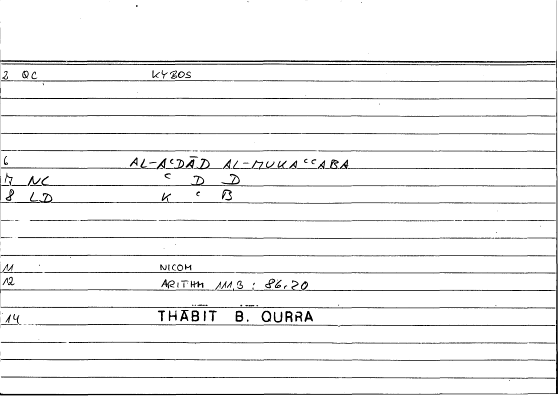 2 QC KYBOS
6 AL-AᶜDĀD AL-MUKAᶜᶜABA
7 NC ᶜ D D
8 LD K ᶜ B
11 NICOM
12 ARITHM 111,3 : 86,20
14 THĀBIT B. QURRA